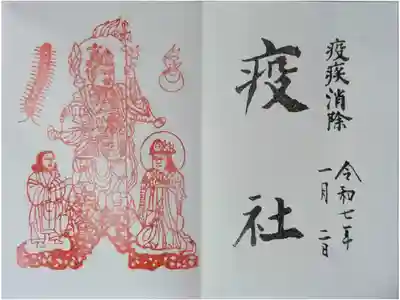 疫疾消除
疫社
令和七年
一月二日